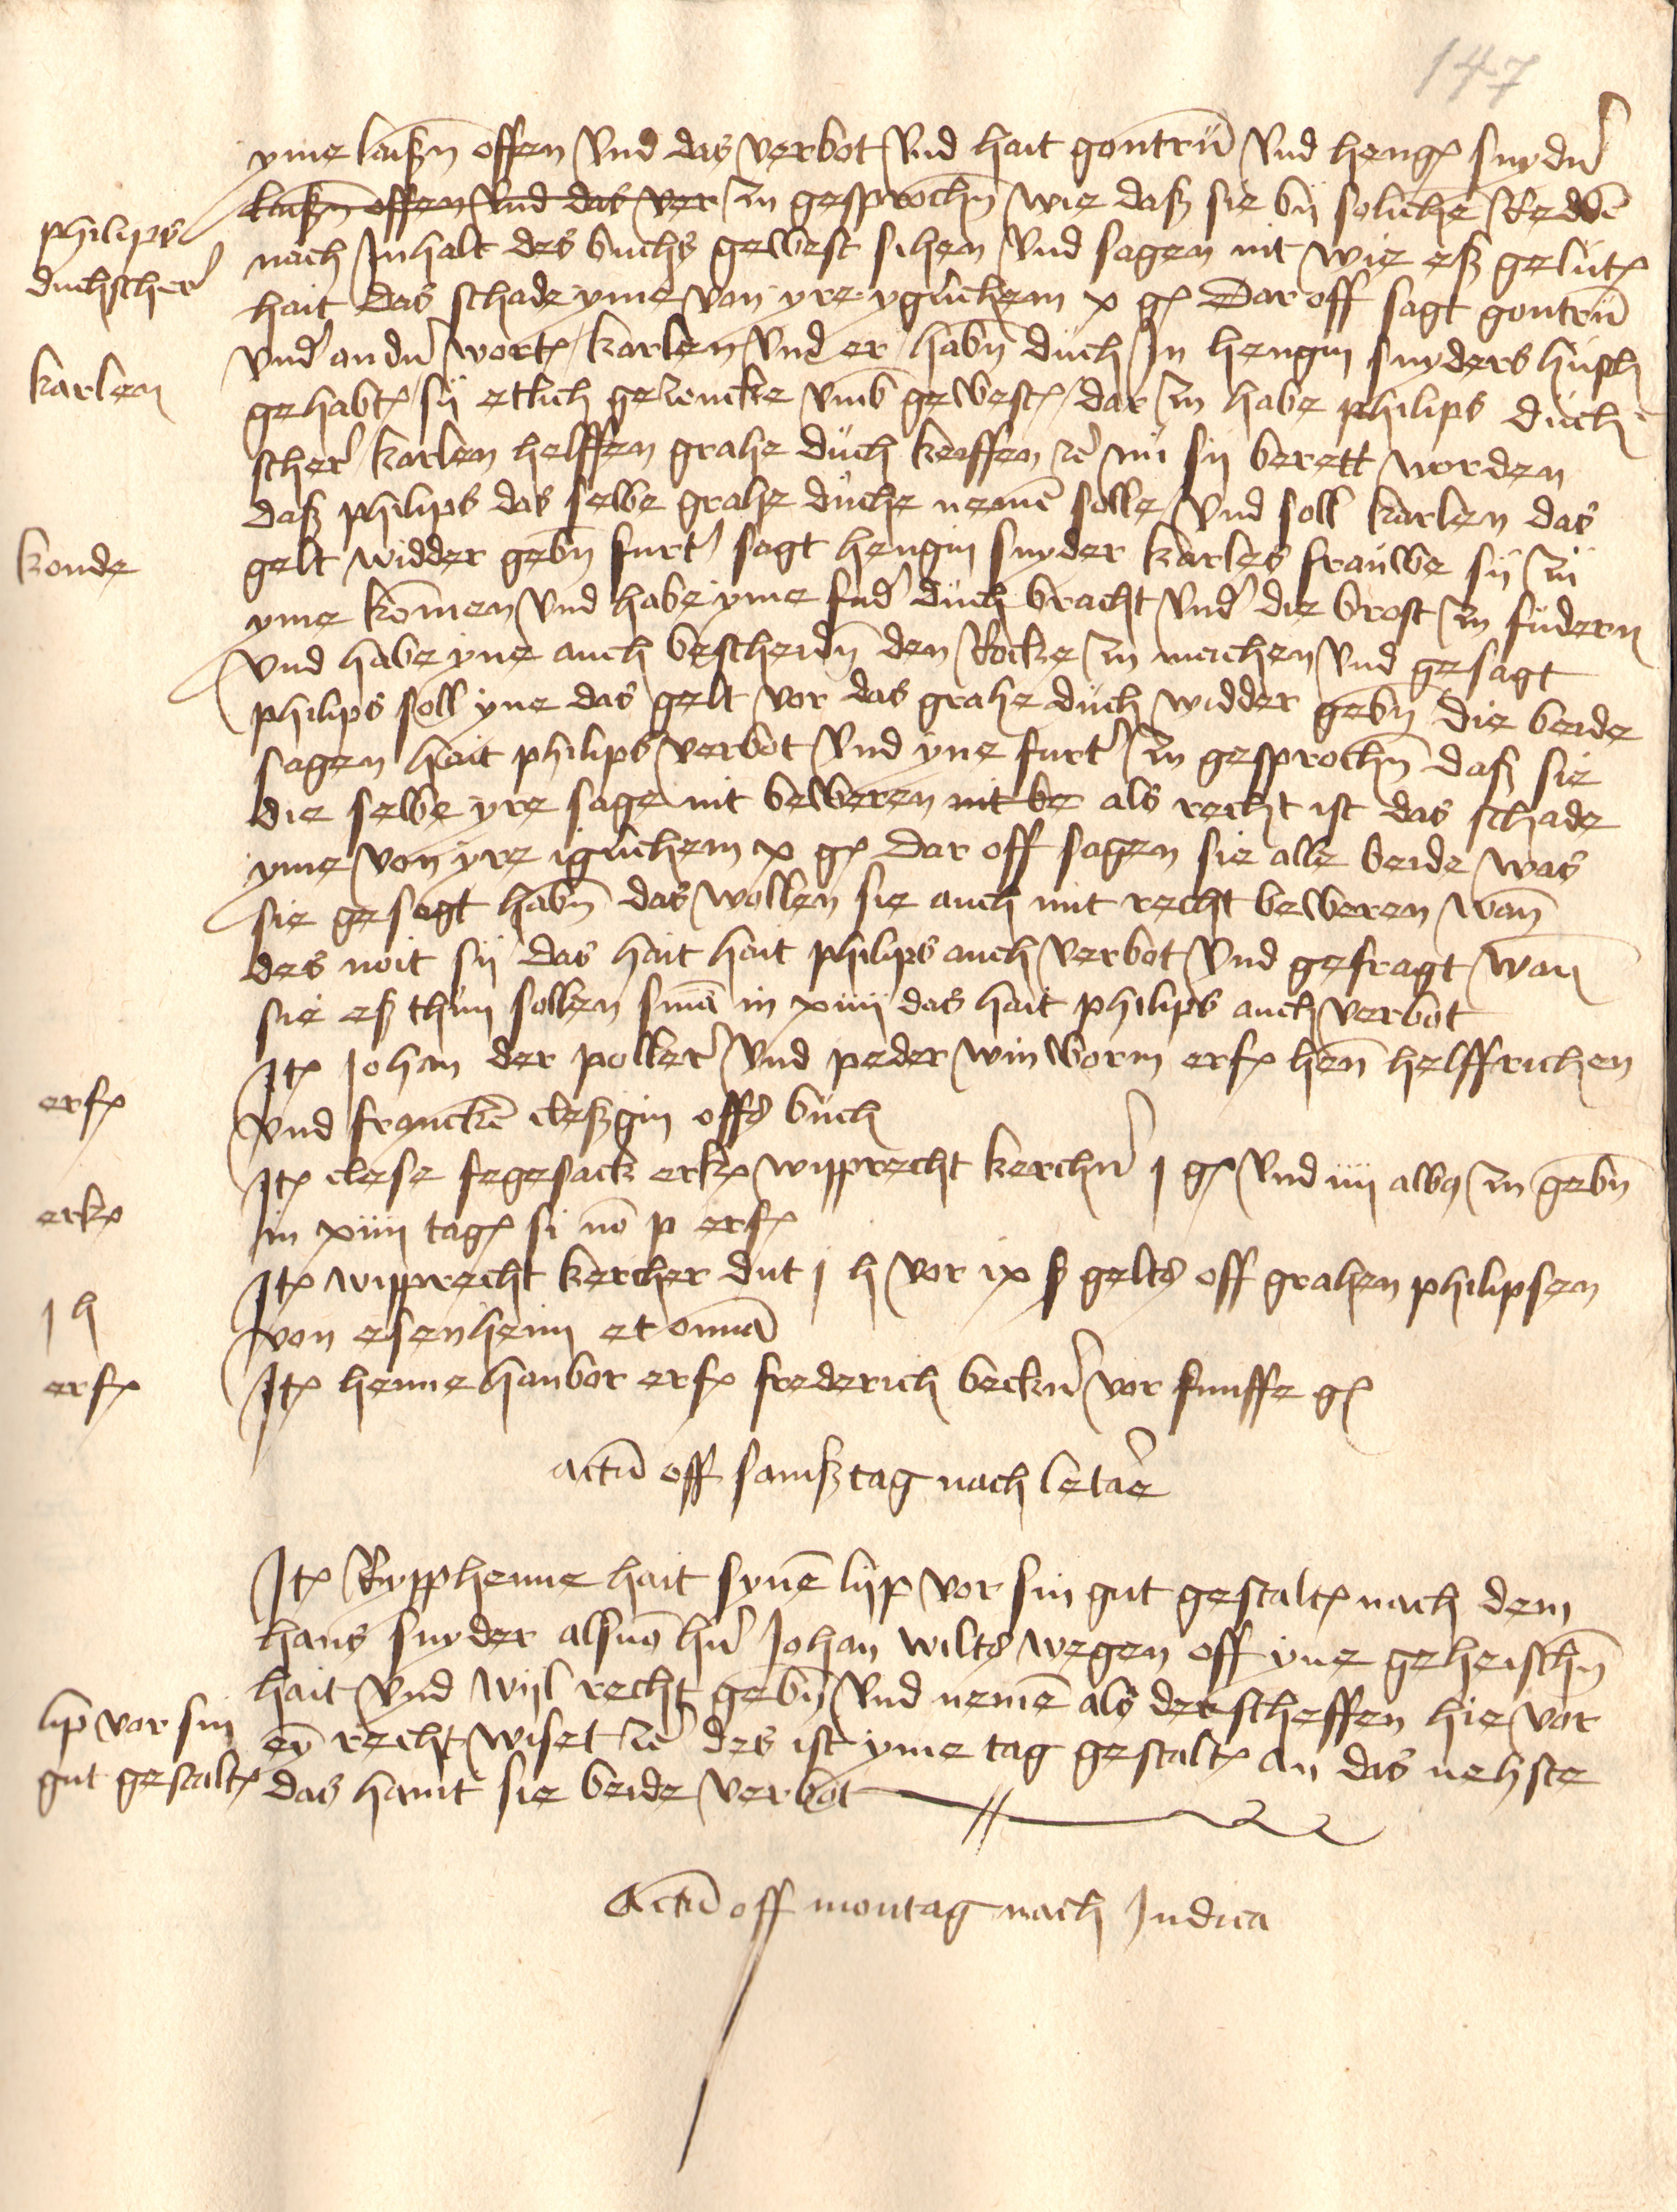 147
yme laißen offen vnd das verbot vnd hait gontrū vnd heng snyder
philips
duchscherr
laißen offen vnd das ver zu gesprochn wie daß sie by soliche Redde
nach Inhalt des buchs gewest sihen vnd sagen nit wie eß gelut
hait das schade yme von yre yglichem x g Dar off sagt gontrū
karlen
vnd andn wort karlen vnd er habn duch In hengin snyders husch
gehabt sy etlich gezencke vmb gewest dar zu habe philips duch
scherr karlen helffen grahe duch keuffen zc nu sy berett worden
daß philips das selbe grahe duche neme solle vnd soll karlen das
konde
gelt widder gebn furt sagt hengin snyder karles frauwe sy zu
yme komen vnd habe yme sud duch bracht vnd die brost zu fudern
vnd habe yne auch bescheidn den Rocke zu machen vnd gesagt
philips soll yne das gelt vor das grahe duch widder gebn die beide
sagen hait philips verbot vnd yne furt zu gesprochn daß sie
die selbe yre sage nit beweren nit be als recht ist das schade
yme von yre iglichem x g Dar off sagen sie alle beide was
sie gesagt habn das wollen sie auch mit recht beweren wan
des noit sy das hait hait philips auch verbot vnd gefragt wan
sie eß thun sollen sma in xiiii das hait philips auch verbot
erf
It Johan der poller vnd peder winworm erf hen helffrichen
vnd francke cleßgin offs buch
erk
It clese fegesack erk wipprecht kerchn j g vnd iiii albq zu gebn
in xiiii tag si no p erf
j h
It wipprecht kercher dut j h vor ix ß gelts off grahen philipsen
von esenheim et omnia
erf
It henne hanbor erf frederich beckn vor funffe g
Actū off samßtag nach letare
It Rypphenne hait syne lijp vor sin gut gestalt nach dem
hans snyder alsno hn Johan wilts wegen off yne geheischn
hait vnd wijl recht gebn vnd neme als der scheffen hie vor
lip vor sin
gut gestalt
ey recht wiset zc des ist yme tag gestalt an das nehste
das hant sie beide verbot
Actū off montag nach Judica